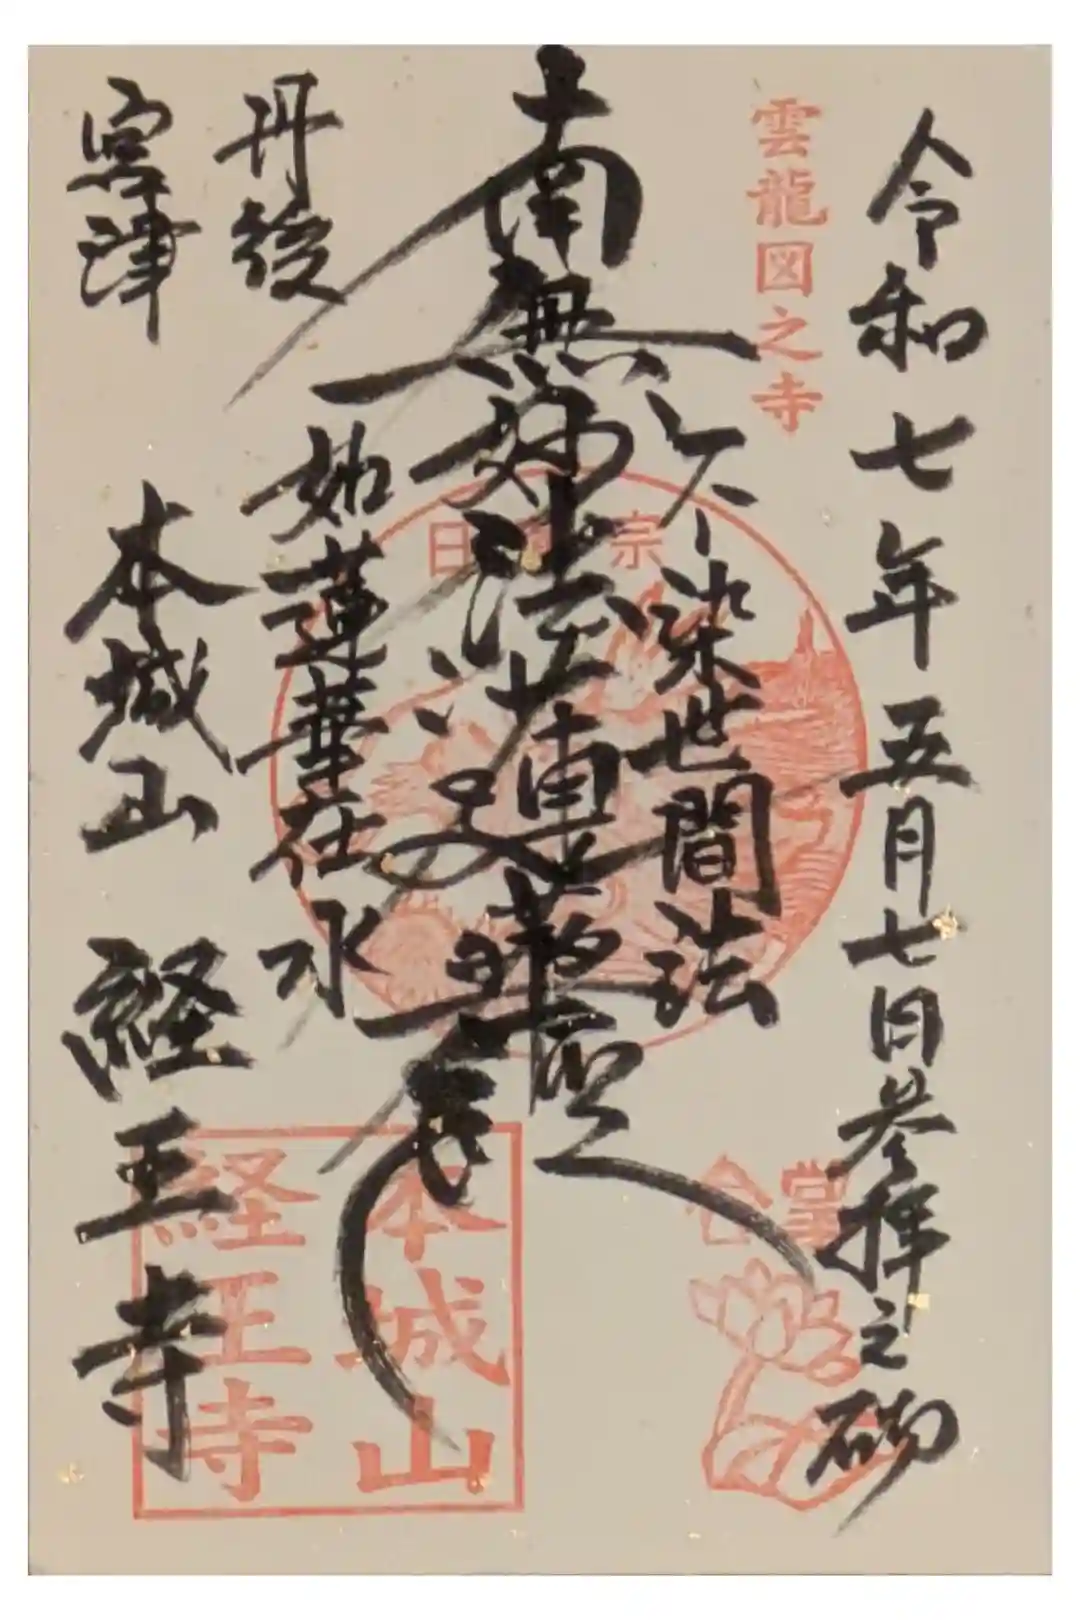 令和七年五月七日参拝之砌
雲龍図之寺
不染世間法
南無妙法蓮華経
如蓮華在水
丹後
宮津
本城山 経王寺
日蓮宗
合掌
本城山
経王寺